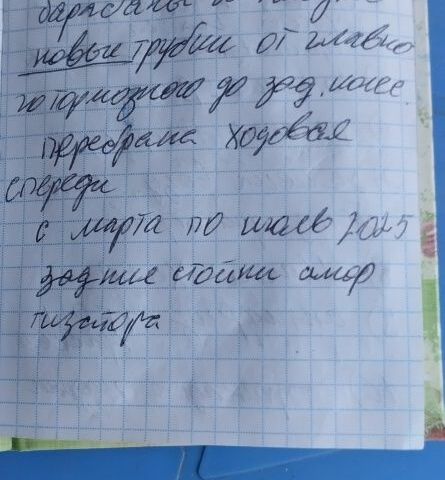 барабаны и
новые трубки от главно
го тормозного до зад. колес.
перебрана ходовая
спереди
с марта по июль 2025
задние стойки амор
тизатора